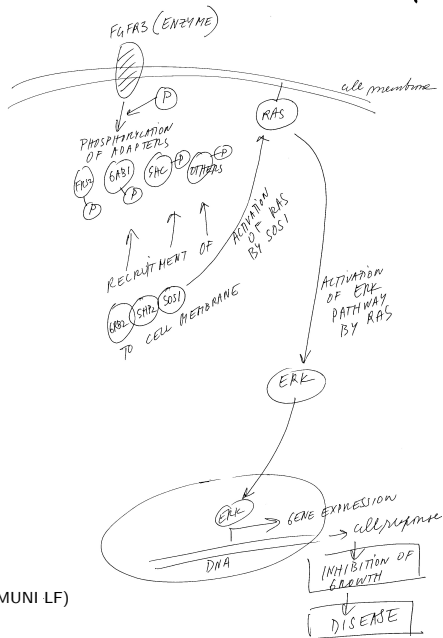 FGFR3 (ENZYME)
cell membrane
P
RAS
PHOSPHORYLATION
OF ADAPTERS
FRS2
P
GAB1
P
SHC
P
OTHERS
P
ACTIVATION
OF RAS
BY SOS1
RECRUITMENT OF
GRB2
SHP2
SOS1
TO CELL MEMBRANE
ACTIVATION
OF ERK
PATHWAY
BY RAS
ERK
ERK
GENE EXPRESSION
DNA
cell response
INHIBITION OF
GROWTH
DISEASE
MUNI LF)